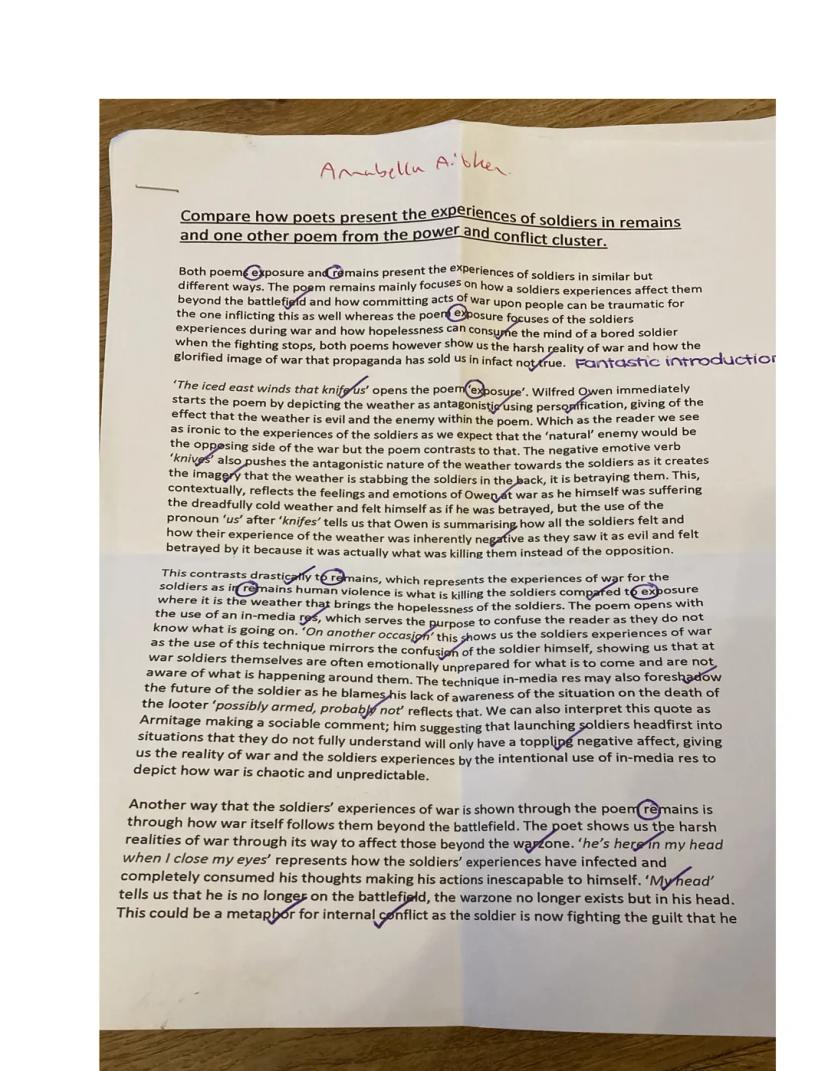 Annabella Aibher
Compare how poets present the experiences of soldiers in remains
and one other poem from the power and conflict cluster.
Both poems exposure and remains present the experiences of soldiers in similar but
different ways. The poem remains mainly focuses on how a soldiers experiences affect them
beyond the battlefield and how committing acts of war upon people can be traumatic for
the one inflicting this as well whereas the poem exposure focuses of the soldiers
experiences during war and how hopelessness can consume the mind of a bored soldier
when the fighting stops, both poems however show us the harsh reality of war and how the
glorified image of war that propaganda has sold us in infact not true. Fantastic introduction
'The iced east winds that knife us' opens the poem 'exposure'. Wilfred Owen immediately
starts the poem by depicting the weather as antagonistic using personification, giving of the
effect that the weather is evil and the enemy within the poem. Which as the reader we see
as ironic to the experiences of the soldiers as we expect that the 'natural' enemy would be
the opposing side of the war but the poem contrasts to that. The negative emotive verb
'knives' also pushes the antagonistic nature of the weather towards the soldiers as it creates
the imagery that the weather is stabbing the soldiers in the back, it is betraying them. This,
contextually, reflects the feelings and emotions of Owen at war as he himself was suffering
the dreadfully cold weather and felt himself as if he was betrayed, but the use of the
pronoun 'us' after 'knifes' tells us that Owen is summarising how all the soldiers felt and
how their experience of the weather was inherently negative as they saw it as evil and felt
betrayed by it because it was actually what was killing them instead of the opposition.
This contrasts drastically to remains, which represents the experiences of war for the
soldiers as in remains human violence is what is killing the soldiers compared to exposure
where it is the weather that brings the hopelessness of the soldiers. The poem opens with
the use of an in-media res, which serves the purpose to confuse the reader as they do not
know what is going on. 'On another occasion' this shows us the soldiers experiences of war
as the use of this technique mirrors the confusion of the soldier himself, showing us that at
war soldiers themselves are often emotionally unprepared for what is to come and are not
aware of what is happening around them. The technique in-media res may also foreshadow
the future of the soldier as he blames his lack of awareness of the situation on the death of
the looter 'possibly armed, probably not' reflects that. We can also interpret this quote as
Armitage making a sociable comment; him suggesting that launching soldiers headfirst into
situations that they do not fully understand will only have a toppling negative affect, giving
us the reality of war and the soldiers experiences by the intentional use of in-media res to
depict how war is chaotic and unpredictable.
Another way that the soldiers' experiences of war is shown through the poem remains is
through how war itself follows them beyond the battlefield. The poet shows us the harsh
realities of war through its way to affect those beyond the warzone. 'he's here in my head
when I close my eyes' represents how the soldiers' experiences have infected and
completely consumed his thoughts making his actions inescapable to himself. 'My head'
tells us that he is no longer on the battlefield, the warzone no longer exists but in his head.
This could be a metaphor for internal conflict as the soldier is now fighting the guilt that he